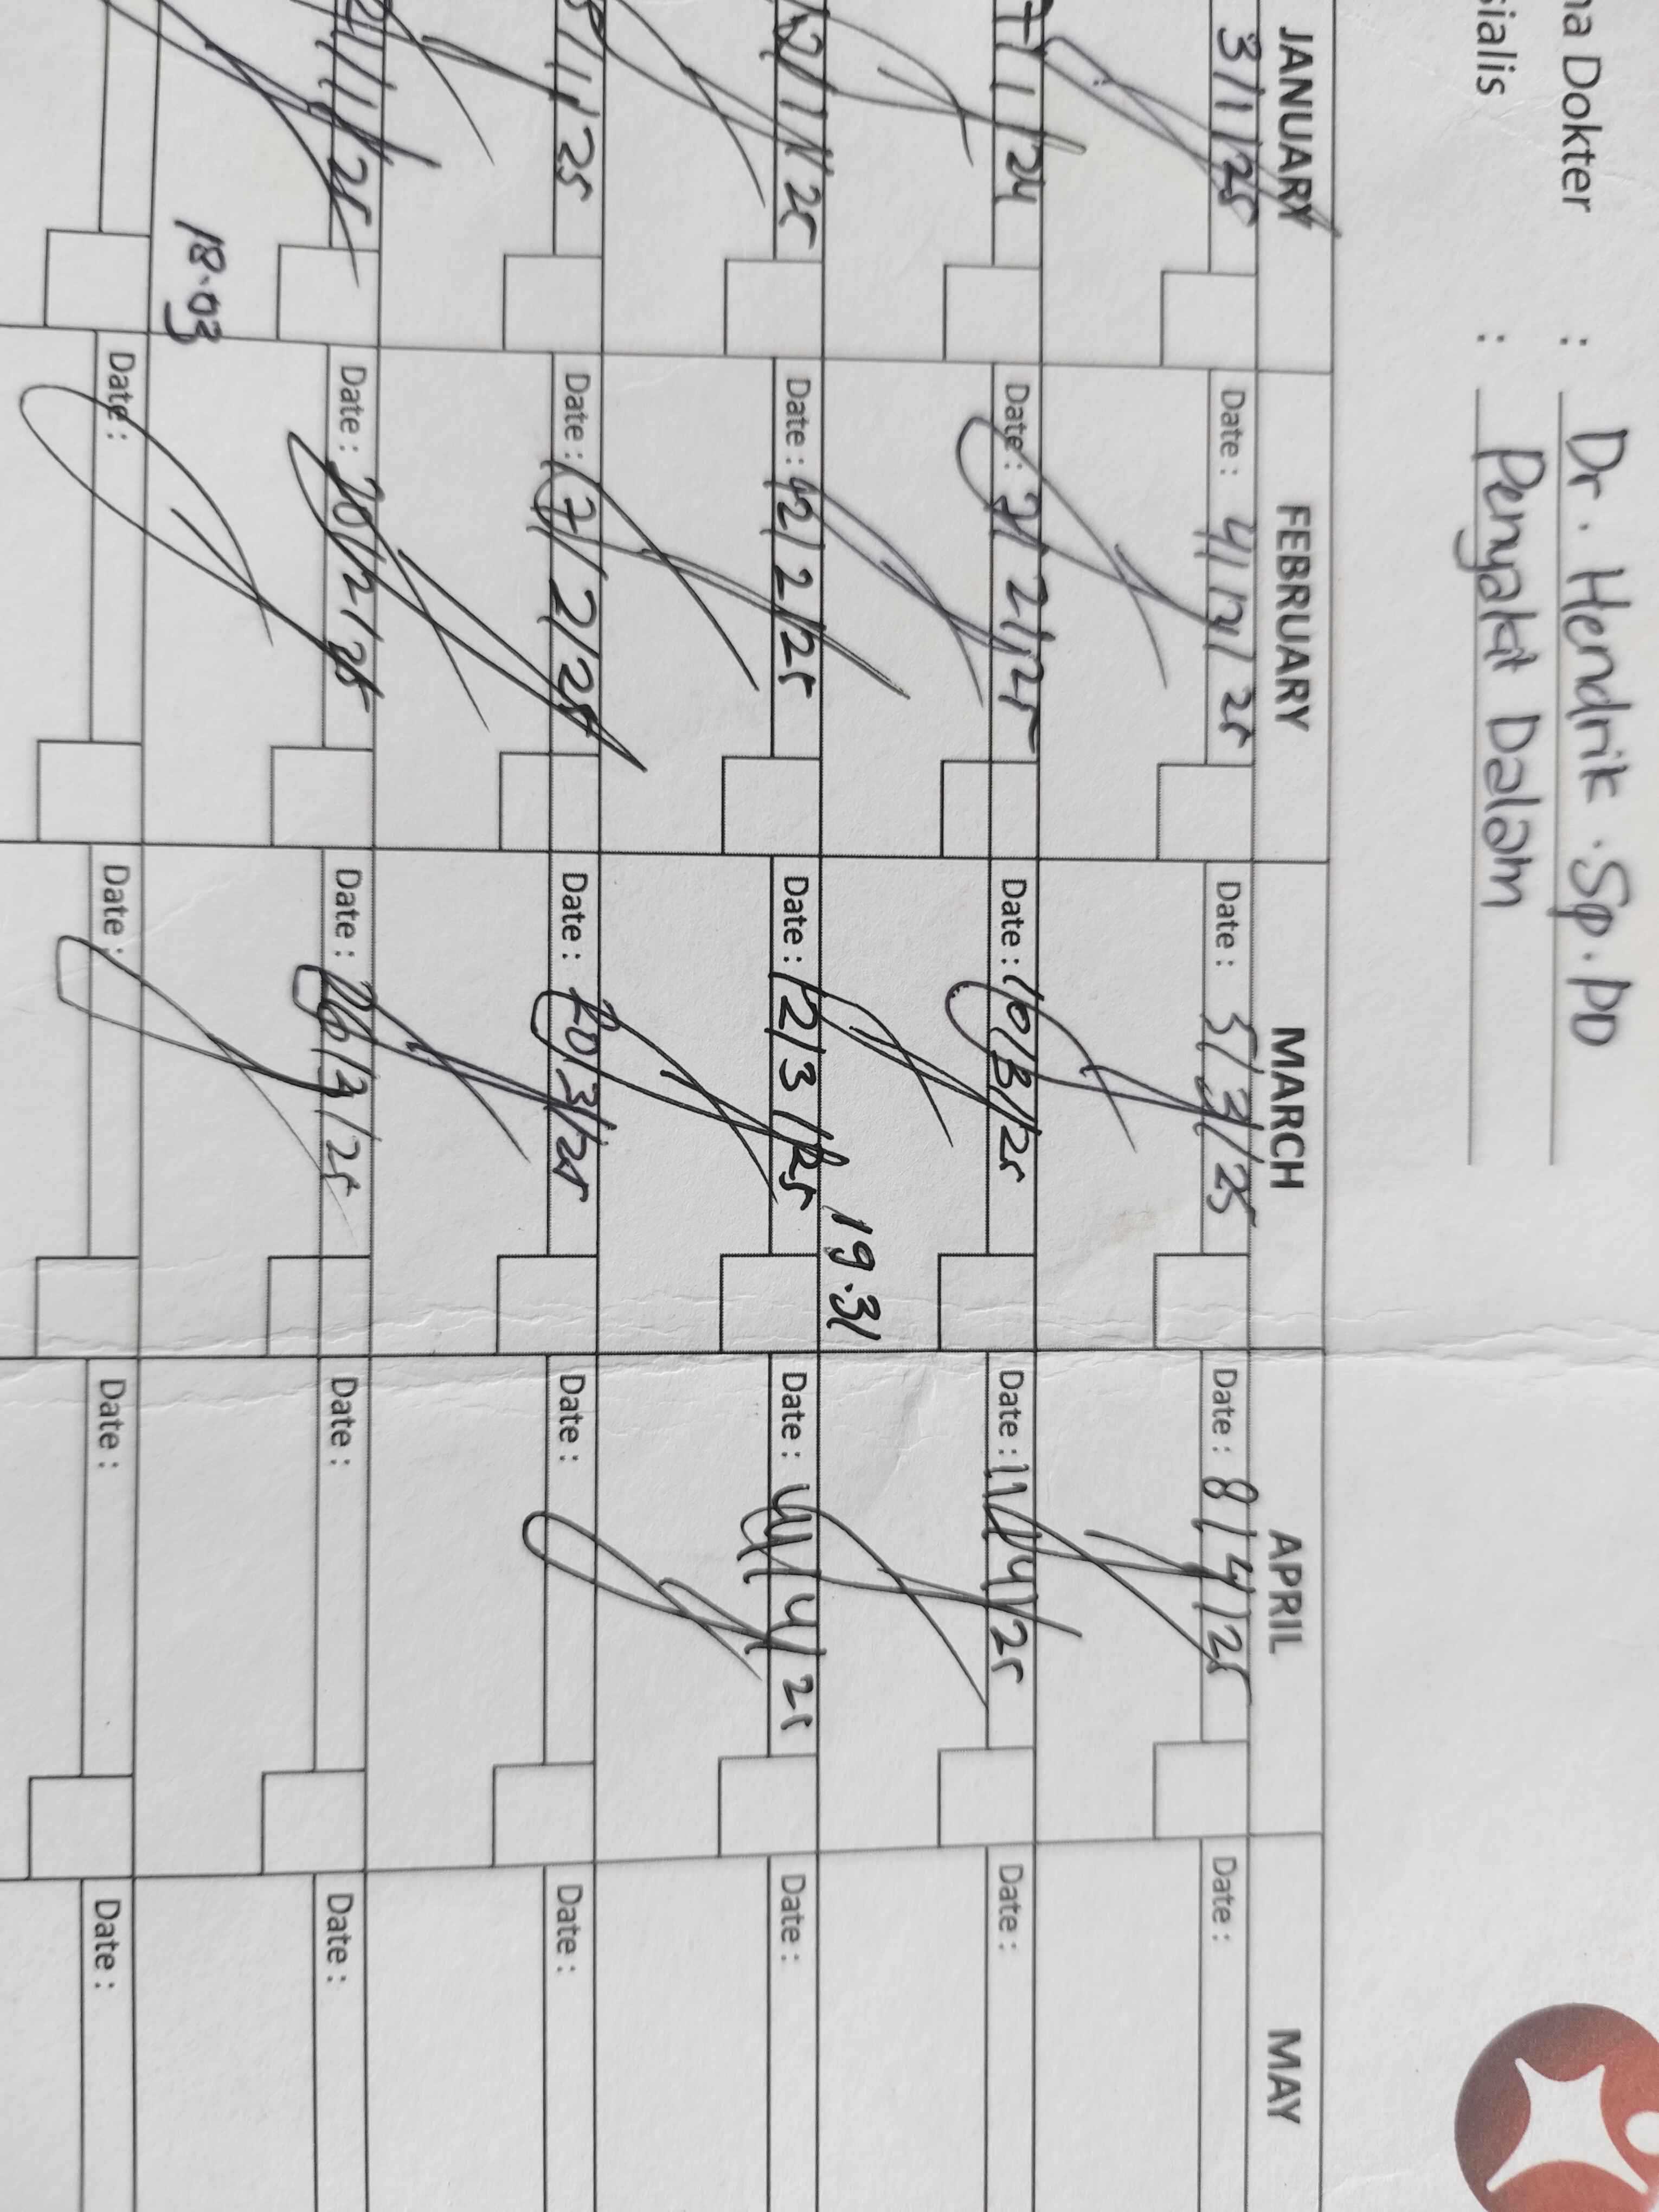 na Dokter : Dr. Hendrik . Sp. PD
sialis : Penyakit Dalam
JANUARY FEBRUARY MARCH APRIL MAY
3/1/25 Date : 4/2/25 Date : 5/3/25 Date : 8/4/25 Date :
7/1/24 Date : 7/2/25 Date : 10/3/25 Date : 11/4/25 Date :
19.31
12/1/25 Date : 12/2/25 Date : 12/3/25 Date : 14/4/25 Date :
/1/25 Date : 17/2/25 Date : 20/3/25 Date : Date :
21/1/25 Date : 20/2/25 Date : 26/3/25 Date : Date :
18.03
Date : Date : Date : Date :